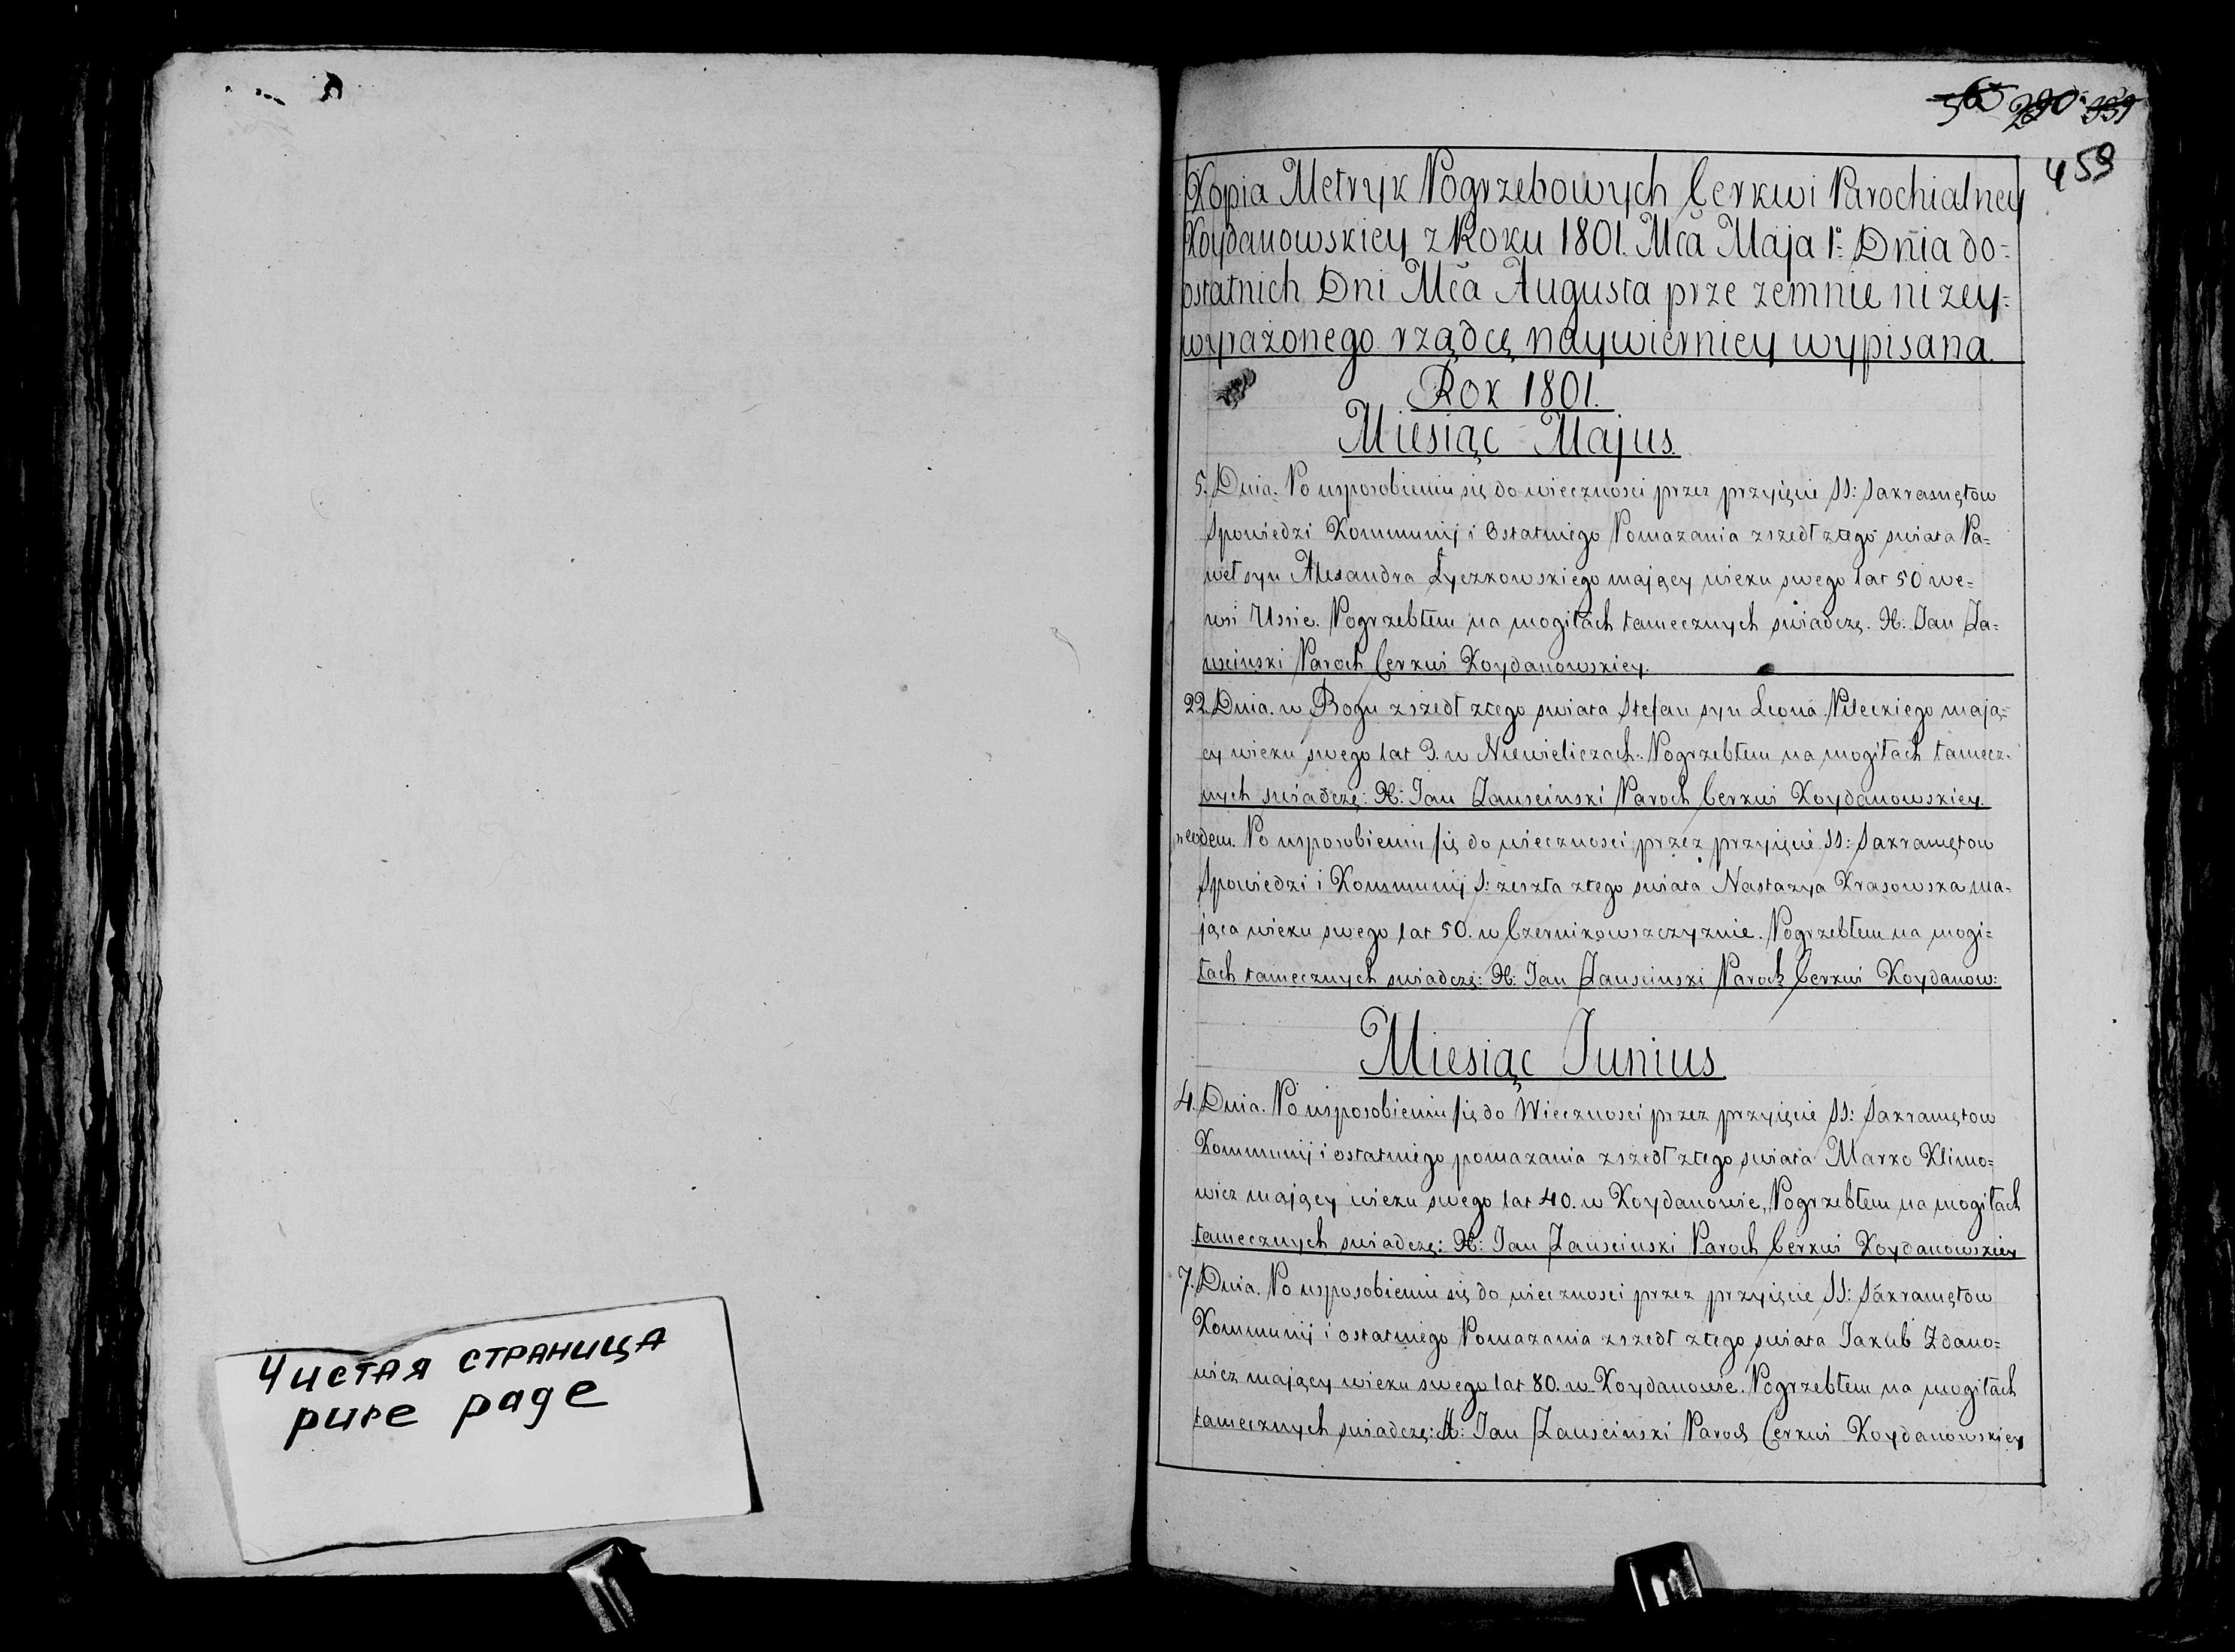 Чистая страница
pure page
565 290 459
Kopia Metryk Pogrzebowych Cerkwi Parochialney
Koydanowskiey z Roku 1801. Mca Maja 1º Dnia do=
ostatnich Dni Mca Augusta prze zemnie nizey=
wyrażonego rządcę naywierniey wypisana.
Rok 1801.
Miesiąc Majus.
5. Dnia. Po usposobieniu się do wiecznosci przez przyięcie SS: Sakramętow
Spowiedzi Kommunij i Ostatniego Pomazania zszedł ztego swiata Pa=
weł syn Alexandra Łyczkowskiego maiący wieku swego lat 50 we=
wsi Ussie. Pogrzebłem na mogiłach tamecznych swiadczę. X: Jan Za=
usciński Paroch Cerkwi Koydanowskiey.
22. Dnia. w Bogu zszedł ztego swiata Stefan syn Leona Pileckiego mają=
cy wieku swego lat 3. w Niewieliczach. Pogrzebłem na mogiłach tamecz=
nych swiadczę: X: Jan Zauscinski Paroch Cerkwi Koydanowskiey.
eodem. Po usposobieniu się do wiecznosci przez przyięcie SS: Sakramętow
Spowiedzi i Kommunij S: zeszła ztego swiata Nastazya Krasowska ma=
jąca wieku swego lat 50. w Czernikowszczyznie. Pogrzebłem na mogi=
łach tamecznych swiadczę: X: Jan Zauscinski Paroch Cerkwi Koydanow:
Miesiąc Junius
4. Dnia. Po usposobieniu się do Wiecznosci przez przyięcie SS: Sakramętow
Kommunij i ostatniego pomazania zszedł ztego swiata Marko Klimo=
wicz maiący wieku swego lat 40. w Koydanowie. Pogrzebłem na mogiłach
tamecznych swiadczę: X: Jan Zauscinski Paroch Cerkwi Koydanowskiey
7. Dnia. Po usposobieniu się do wiecznosci przez przyięcie SS: Sakramętow
Kommunij i ostatniego Pomazania zszedł ztego swiata Jakub Zdano=
wicz maiący wieku swego lat 80. w Koydanowie. Pogrzebłem na mogiłach
tamecznych swiadczę: X: Jan Zauscinski Paroch Cerkwi Koydanowskiey